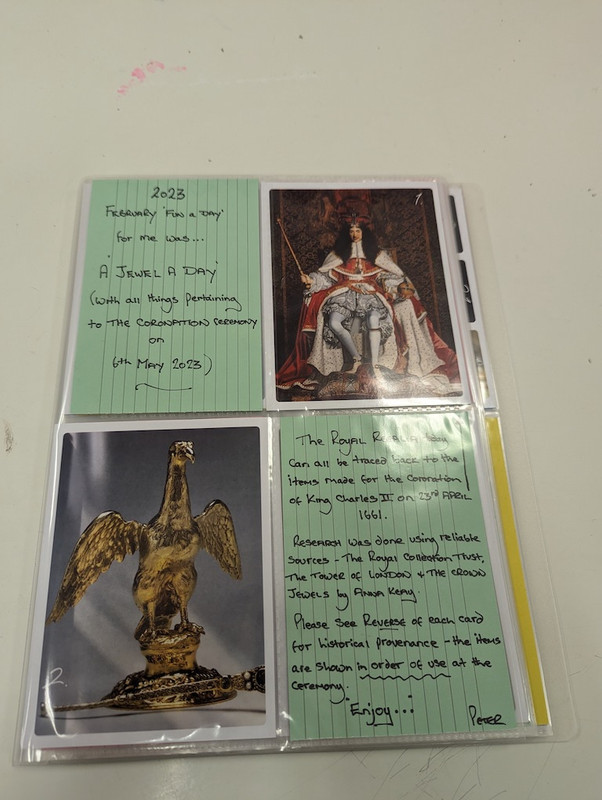 2023
FEBRUARY 'FUN A DAY'
for me was...
'A JEWEL A DAY'
(with all things pertaining
to THE CORONATION CEREMONY
on
6th MAY 2023)
1
The ROYAL REGALIA today
can all be traced back to the
items made for the Coronation
of King Charles II on 23rd APRIL
1661.
RESEARCH was done using reliable
sources - The Royal Collection Trust,
The TOWER of LONDON & THE CROWN
JEWELS by ANNA KEAY.
Please see REVERSE of each card
for historical provenance - the items
are shown in order of use at the
ceremony.
"Enjoy..."
PETER
2.